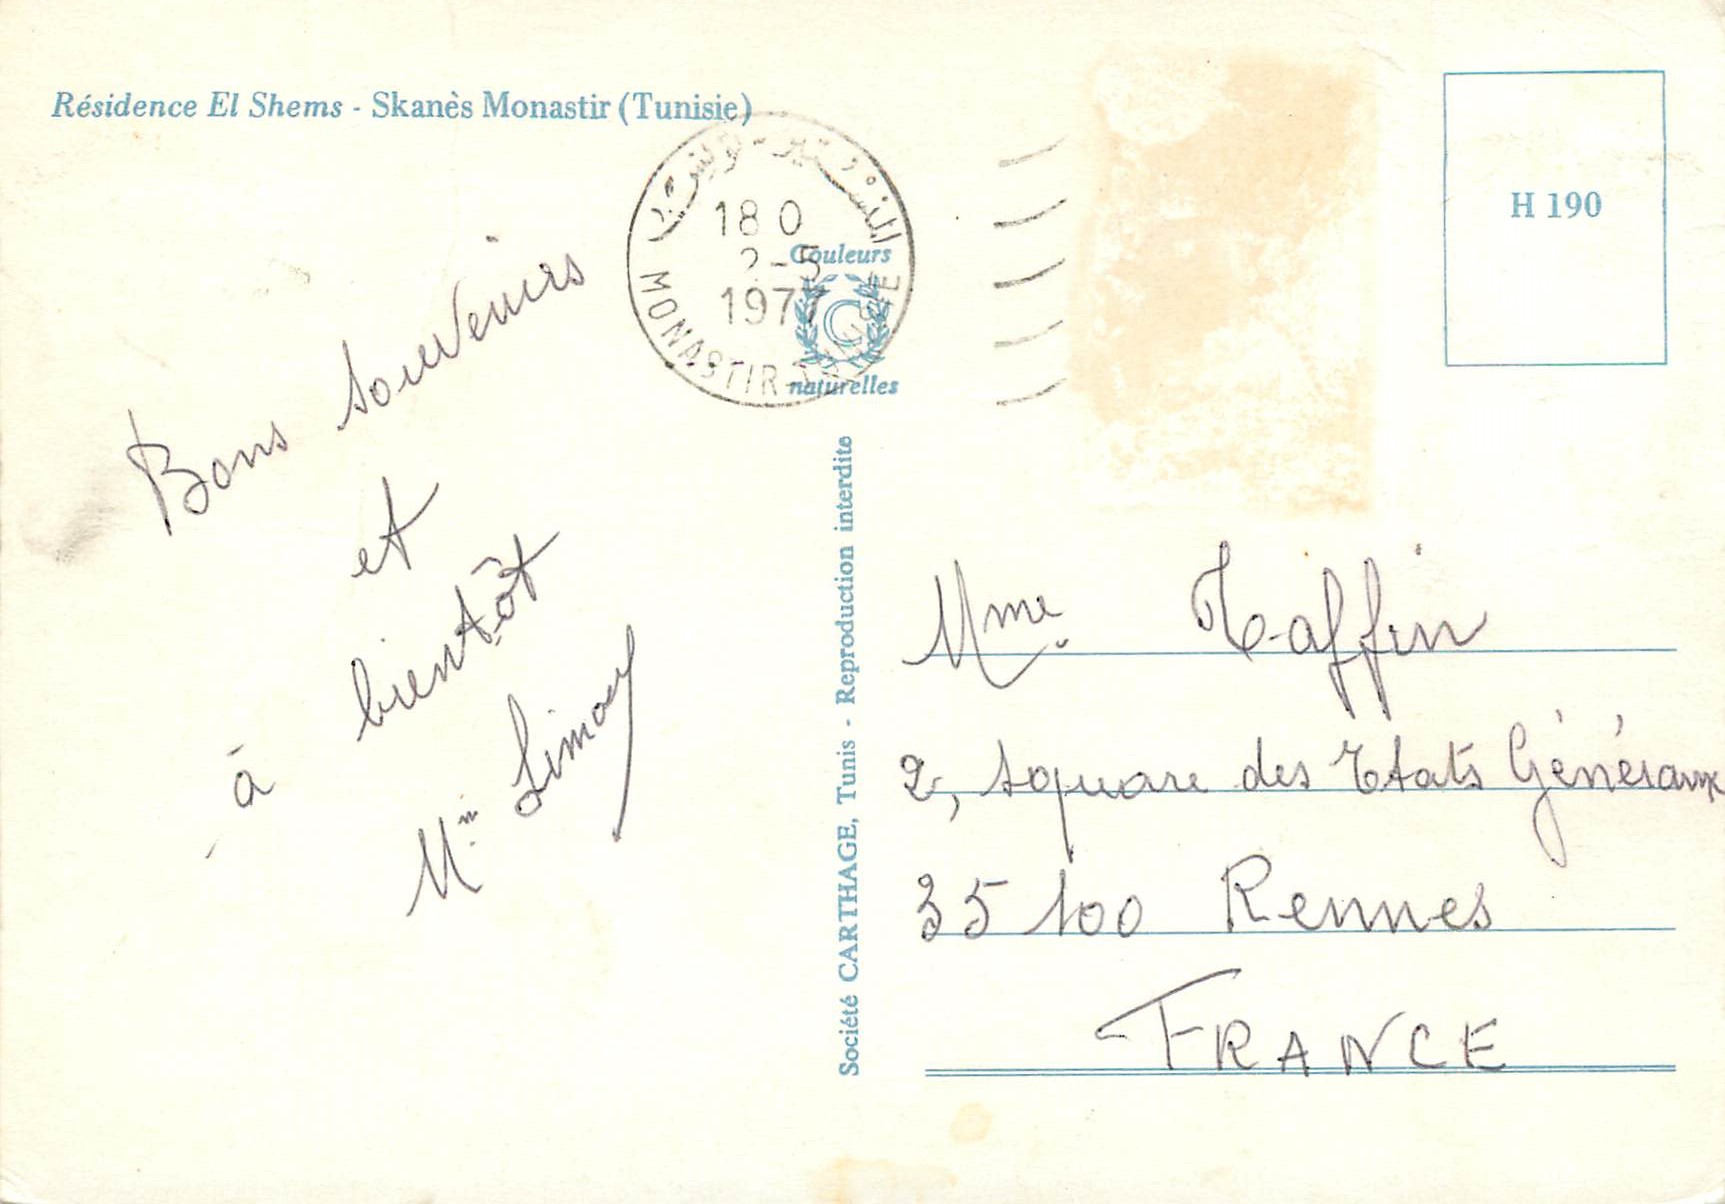 Résidence El Shems - Skanès Monastir (Tunisie)
المنستير - تونس
18 0
2-5
1977
MONASTIR-TUNISIE
Couleurs
C
naturelles
H 190
Bons souvenirs
et
à bientôt
Mm Limoy
Société CARTHAGE, Tunis - Reproduction interdite
Mme Taffin
2, square des Etats Généraux
35100 Rennes
FRANCE